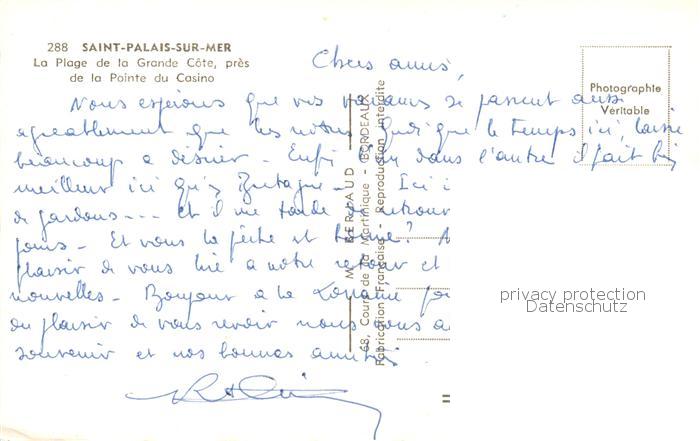 288 SAINT-PALAIS-SUR-MER
La Plage de la Grande Côte, près
de la Pointe du Casino
Photographie
Véritable
Chers amis,
Nous espérons que vos vacances se passent aussi
agréablement que les nôtres quoique le temps ici, laisse
beaucoup a désirer - Enfin l'un dans l'autre il fait bien
meilleur ici qu'en Bretagne - Ici
de gardons... et il me tarde de
jours - Et vous la pêche et
plaisir de vous lire a notre retour et
nouvelles - Bonjour a la
du plaisir de vous revoir nous vous
souvenir et nos bonnes amitiés
M. BERJAUD
68, Cours de la Martinique - BORDEAUX
Fabrication Française - Reproduction Interdite
privacy protection
Datenschutz